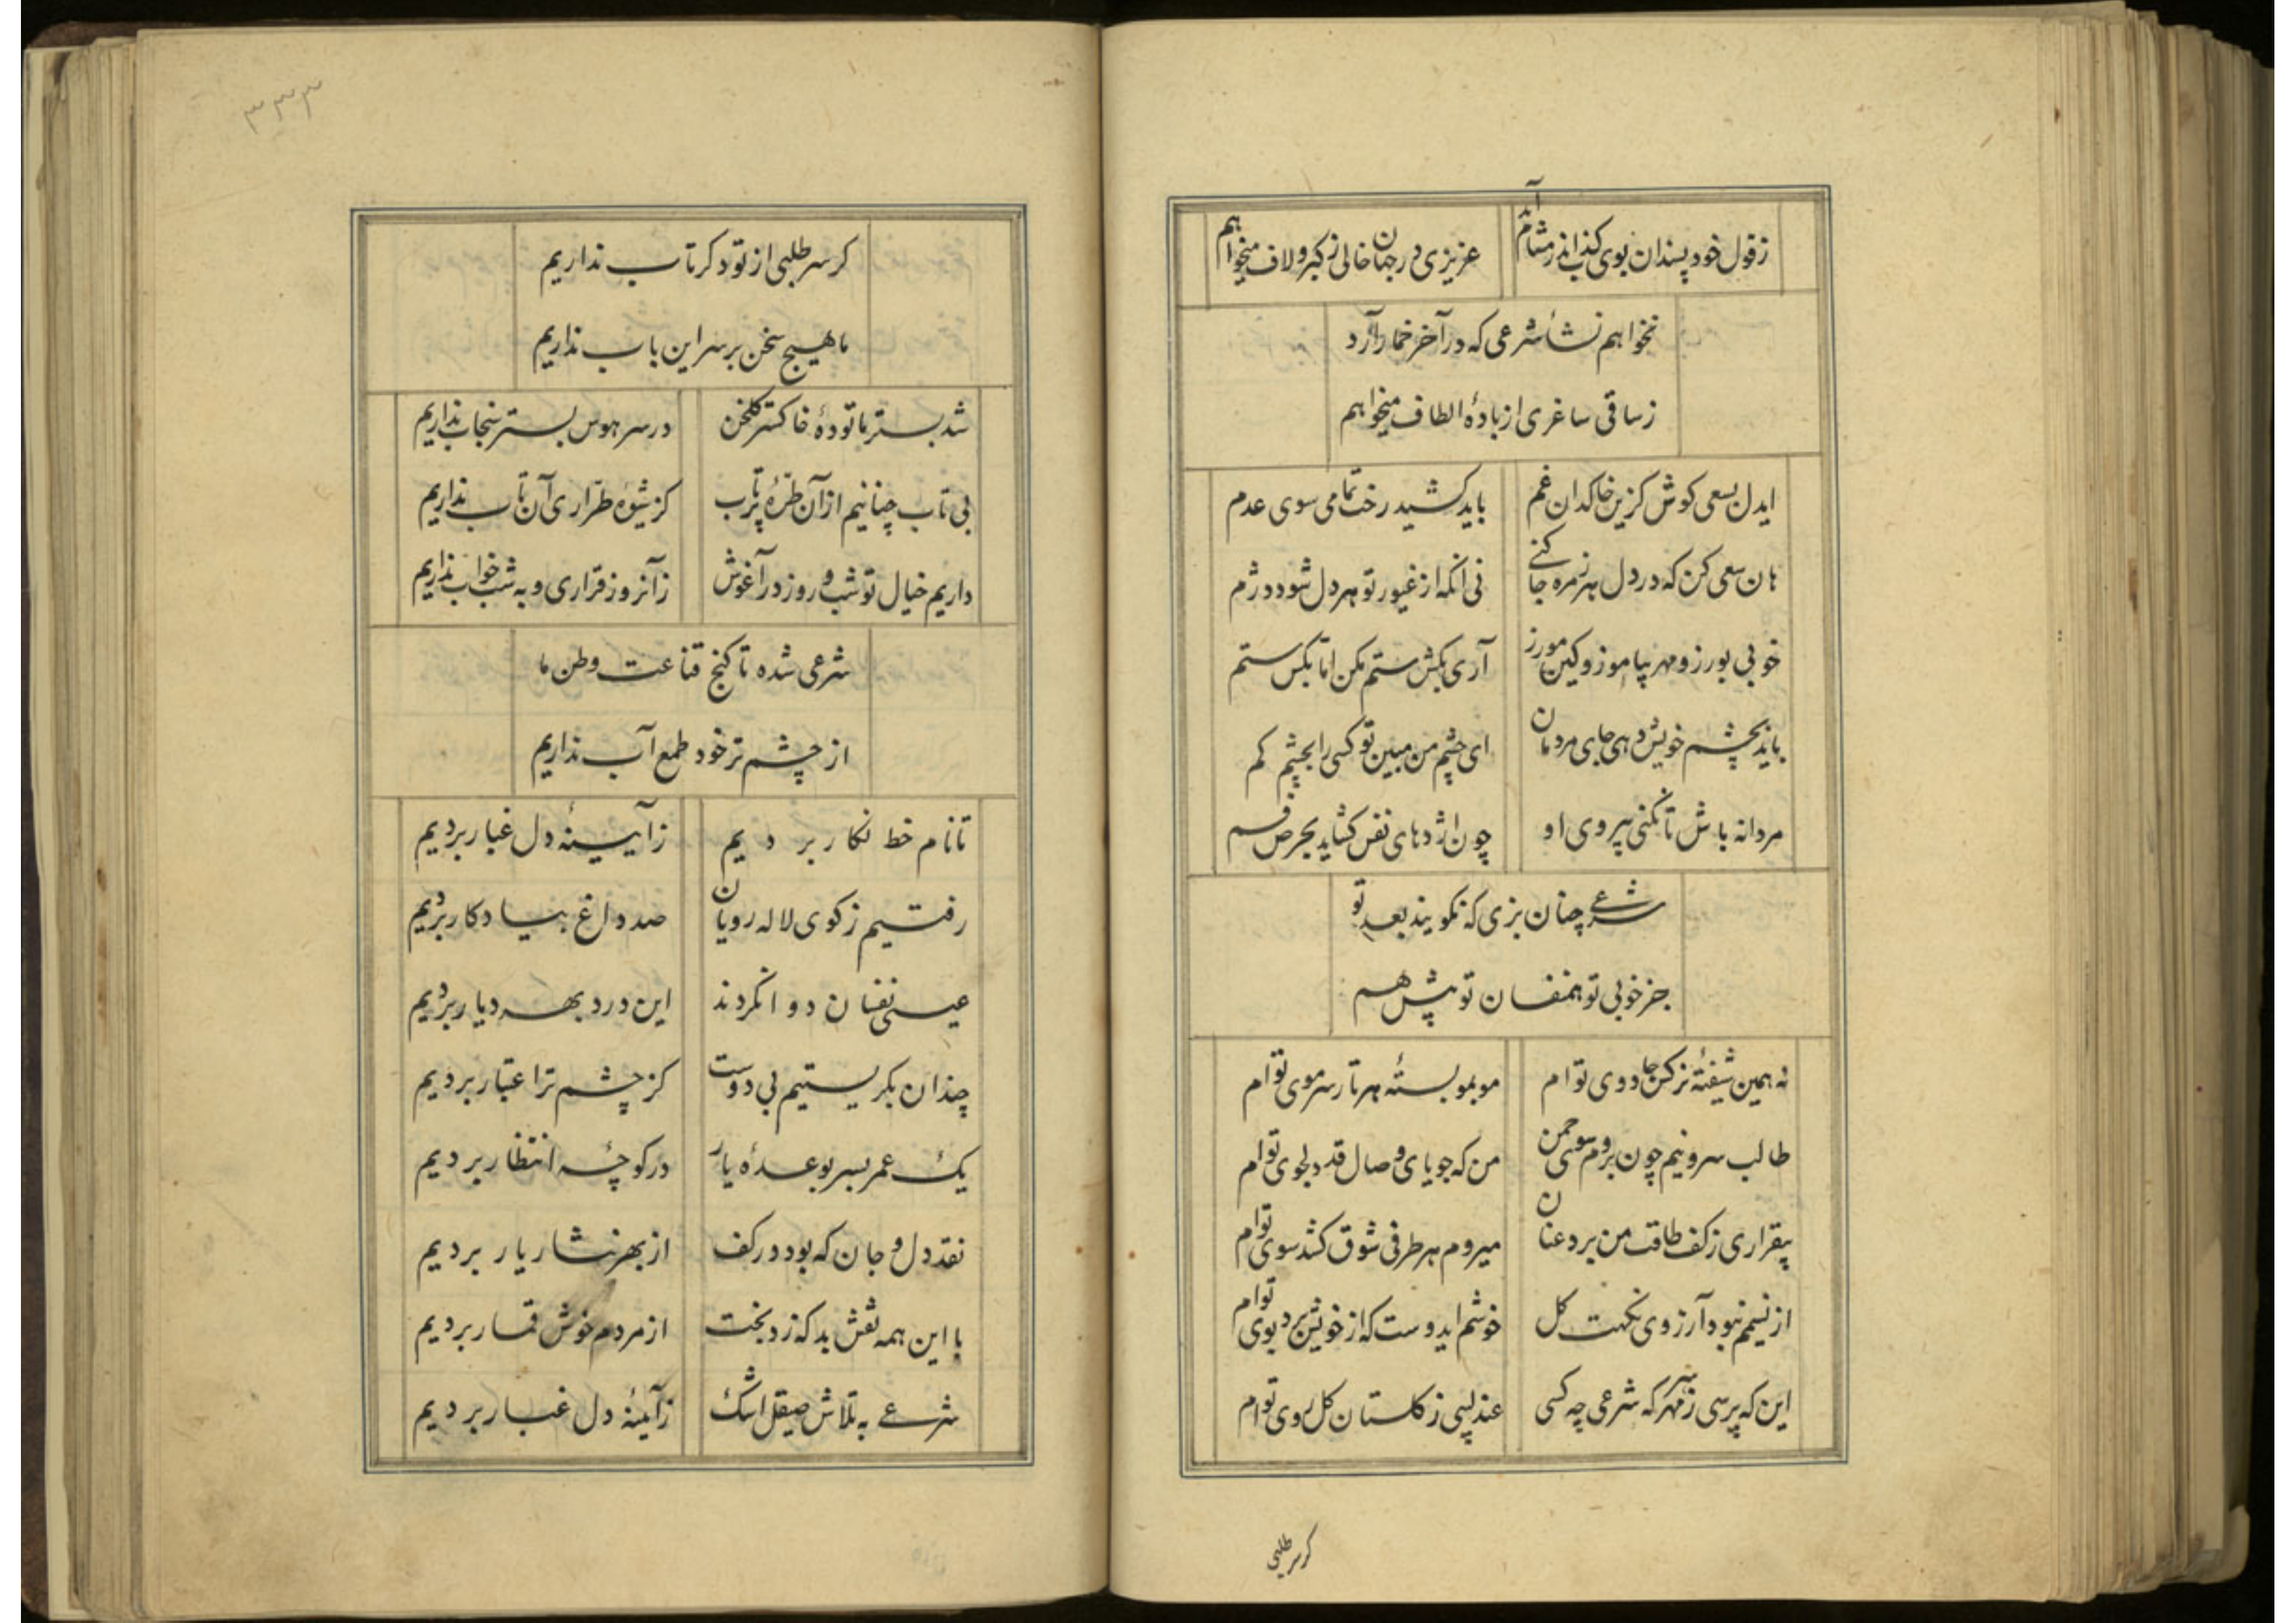 زقول خود پسندان بوی کذب اندر مشام آید عزیزی در جهان خالی ز کبر و لاف میخواهم
نخواهم نشأ شرعی که در آخر خمار آرد
ز ساقی ساغری از بادهٔ الطاف میخواهم
ایدل بسعی کوش کزین خاکدان غم باید کشید رخت تمامی سوی عدم
هان سعی کن که در دل هر زمره جا کنی نی انکه از غیور تو هر دل شود دژم
خوبی بورز و مهر بیاموز و کین مورز آری بکش ستم مکن اما بکس ستم
باید بچشم خویش دهی جای مردمان ای چشم من مبین تو کسی را بچشم کم
مردانه باش تا نکنی پیروی او چون اژدهای نفس کشاید بحرص فم
شرعی چنان بزی که نکویند بعد تو
جز خوبی تو همنفسان تو پیش هم
نه همین شیفتهٔ نرکس جادوی توام موبمو بستهٔ هر تار سر موی توام
طالب سرو نیم چون بروم سوی چمن من که جویای وصال قد دلجوی توام
بیقراری ز کف طاقت من برد عنان میروم هر طرفی شوق کشد سوی توام
از نسیمم نبود آرزوی نکهت کل خوشم ایدوست که از خویش برد بوی توام
این که پرسی ز سر مهر که شرعی چه کسی عندلیبی ز کلستان کل روی توام
کر سر طلبی
۳۳۳
کر سر طلبی از تو دکر تاب نداریم
ما هیچ سخن بر سر این باب نداریم
شد بستر ما تودهٔ خاکستر کلخن در سر هوس بستر سنجاب نداریم
بی تاب چنانیم از آن طرهٔ پرتاب کز شیوهٔ طراری آن تاب نداریم
داریم خیال تو شب و روز در آغوش زآنروز قراری و به شب خواب نداریم
شرعی شده تا کنج قناعت وطن ما
از چشم تر خود طمع آب نداریم
تا نام خط نکار بردیم زآیینهٔ دل غبار بردیم
رفتیم ز کوی لاله رویان صد داغ بیادکار بردیم
عیسی نفسان دوا نکردند این درد بهر دیار بردیم
چندان بکریستیم بی دوست کز چشم تر اعتبار بردیم
یک عمر بسر بوعدهٔ یار در کوچهٔ انتظار بردیم
نقد دل و جان که بود در کف از بهر نثار یار بردیم
با این همه نقش بد که زد بخت از مردم خوش قمار بردیم
شرعی به تلاش صیقل اشک زآئینهٔ دل غبار بردیم